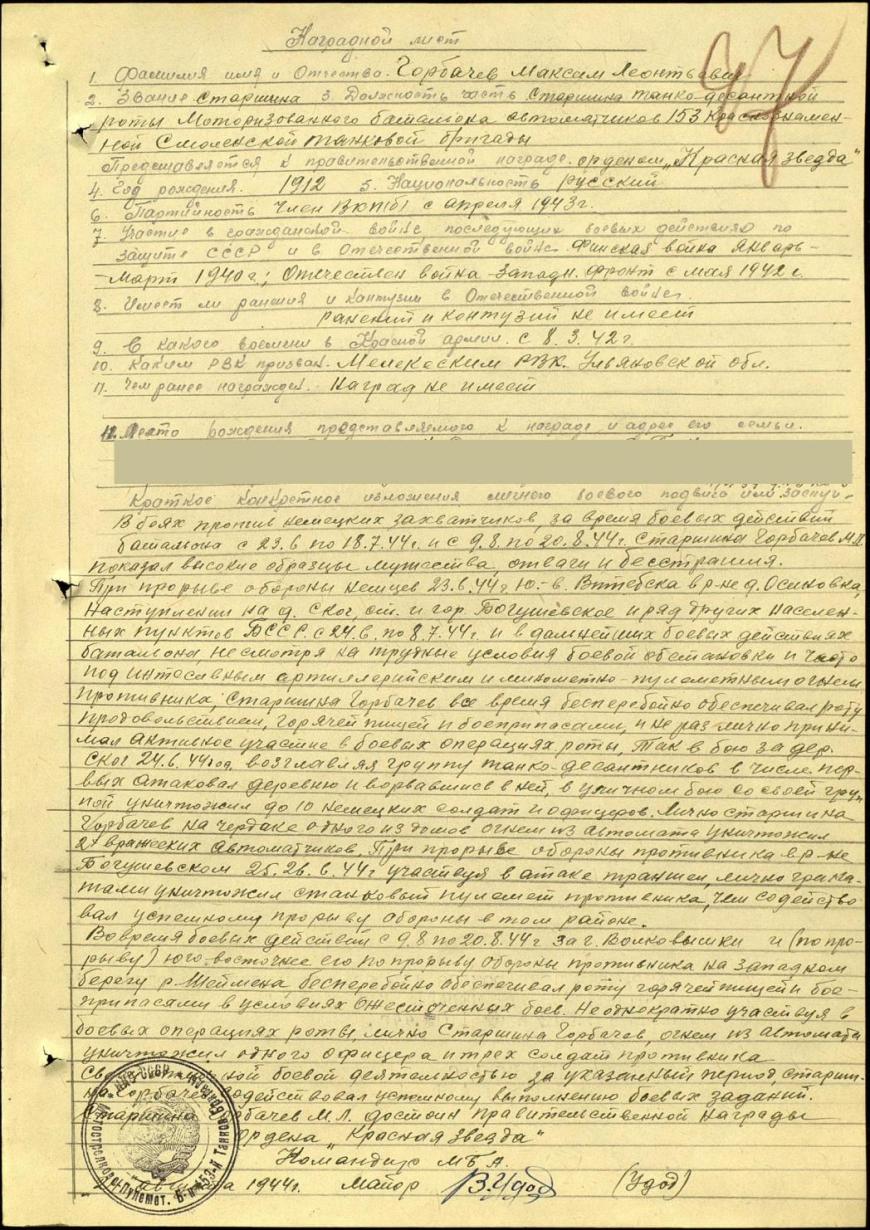 Наградной лист
97
1. Фамилия имя и Отчество. Горбачев Максим Леонтьевич
2. Звание Старшина 3. Должность часть Старшина танко-десантной
роты Моторизованного батальона автоматчиков 153 Краснознамен-
ной Смоленской танковой бригады
Представляется к правительственной награде. орденом „Красная звезда"
4. Год рождения. 1912 5. Национальность русский
6. Партийность Член ВКП(б) с апреля 1943г.
7. Участие в гражданской войне последующих боевых действиях по
защите СССР и в Отечественной войне. Финская война Январь-
-Март 1940г; Отечествен война Западн. фронт с мая 1942г.
8. Имеет ли ранения и контузии в Отечественной войне.
ранений и контузий не имеет
9. С какого времени в Красной армии. с 8.3.42г.
10. Каким РВК призван. Мелекеским РВК. Ульяновской обл.
11. Чем ранее награжден. Наград не имеет
12. Место рождения представляемого к награде и адрес его семьи.
Краткое конкретное изложения личного боевого подвига или заслуг.
В боях против немецких захватчиков, за время боевых действий
батальона с 23.6 по 18.7.44г. и с 9.8. по 20.8.44г. Старшина Горбачев М.Л
показал высокие образцы мужества, отваги и бесстрашия.
При прорыве обороны немцев 23.6.44г Ю.-в. Витебска в р-не д. Осиновка,
Наступлении на д. Ског, ст. и гор. Богушевское и ряд других населен-
ных пунктов БССР. с 24.6. по 8.7.44г. и в дальнейших боевых действиях
батальона, несмотря на трудные условия боевой обстановки и часто
под интесивным артиллерийским и минометно-пулеметным огнем
противника, Старшина Горбачев все время бесперебойно обеспечивал роту
продовольствием, горячей пищей и боеприпасами, и не раз лично прини-
мал активное участие в боевых операциях роты, Так в бою за дер.
Ског 24.6.44год, возглавляя группу танко-десантников в числе пер-
вых атаковал деревню и ворвавшись в ней, в уличном бою со своей груп-
пой уничтожил до 10 немецких солдат и офицеров. Лично старшина
Горбачев на чердаке одного из домов огнем из автомата уничтожил
2х вражеских автоматчиков. При прорыве обороны противника в р-не
Богушевском 25.26.6.44г участвуя в атаке траншеи, лично грана-
тами уничтожил станковый пулемет противника, чем содейство
вал успешному прорыву обороны в том районе.
Во время боевых действий с 9.8 по 20.8.44г за г. Волковышки и (по про-
рыву) юго-восточнее его по прорыву обороны противника на западном
берегу р. Шеймена бесперебойно обеспечивал роту горячей пищей и бое-
припасами в условиях ожесточенных боев. Неоднократно участвуя в
боевых операциях роты, лично Старшина Горбачев, огнем из автомата
уничтожил одного офицера и трех солдат противника
боевой деятельностью за указанный период, старши-
на Горбачев содействовал успешному выполнению боевых заданий.
Старшина Горбачев М.Л. достоин правительственной награды
ордена „Красная звезда"
Командир МБА
1944г. Майор В. Удод (Удод)